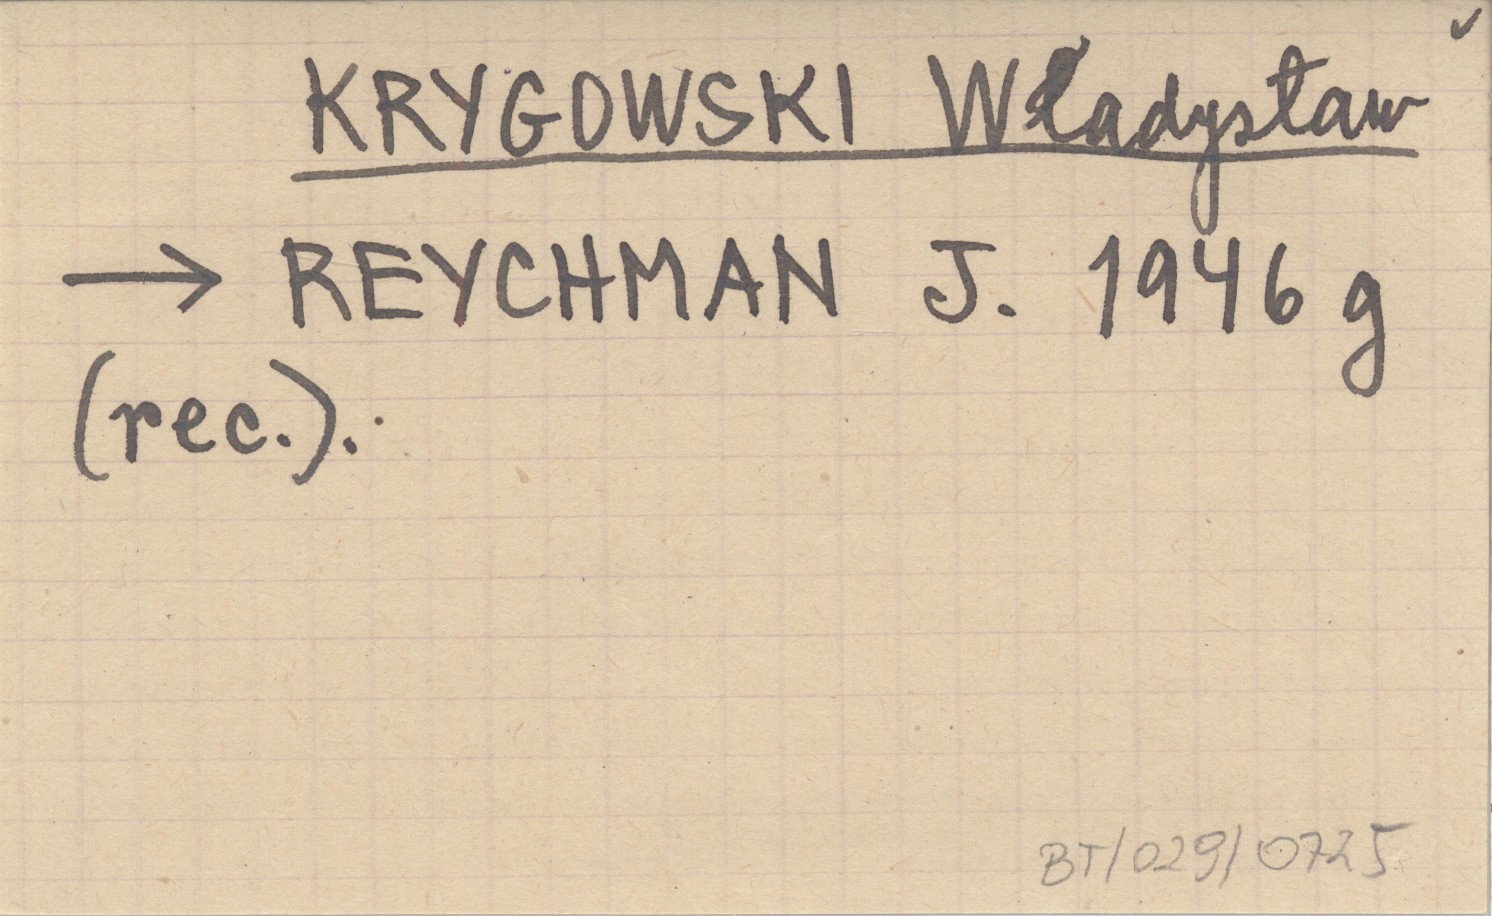 KRYGOWSKI Władysław
→ REYCHMAN J. 1946 g
(rec.).
BT/029/0725